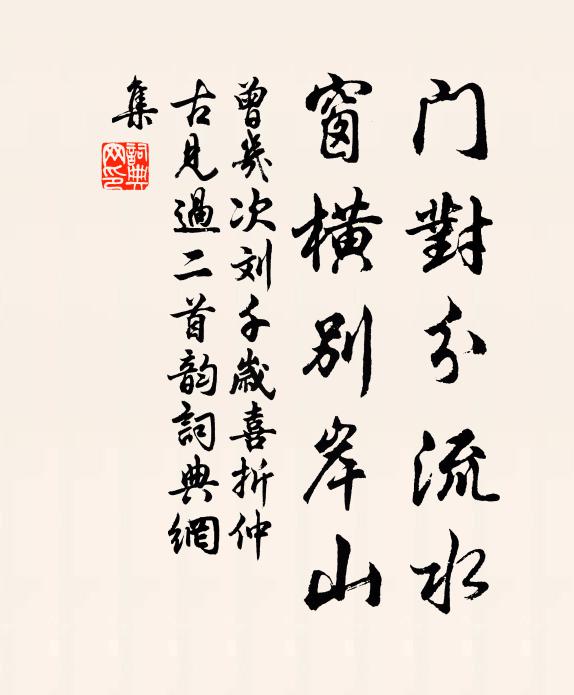 门對分流水
窗横別岸山
曾幾次刘千歲喜折仲
古見過二首韵詞典網
集
詞典
网印